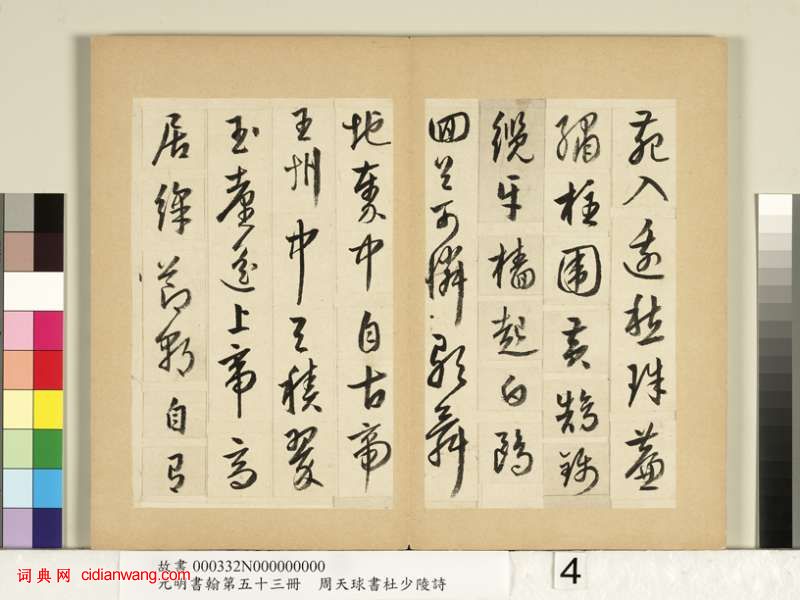 苑入邊愁珠簾
繡柱圍黃鵠錦
纜牙檣起白鷗
回首可憐歌舞
地秦中自古帝
王州中天積翠
玉臺遙上帝高
居絳節朝自有
故書 000332N000000000
元明書翰第五十三冊 周天球書杜少陵詩
4
词典网 cidianwang.com